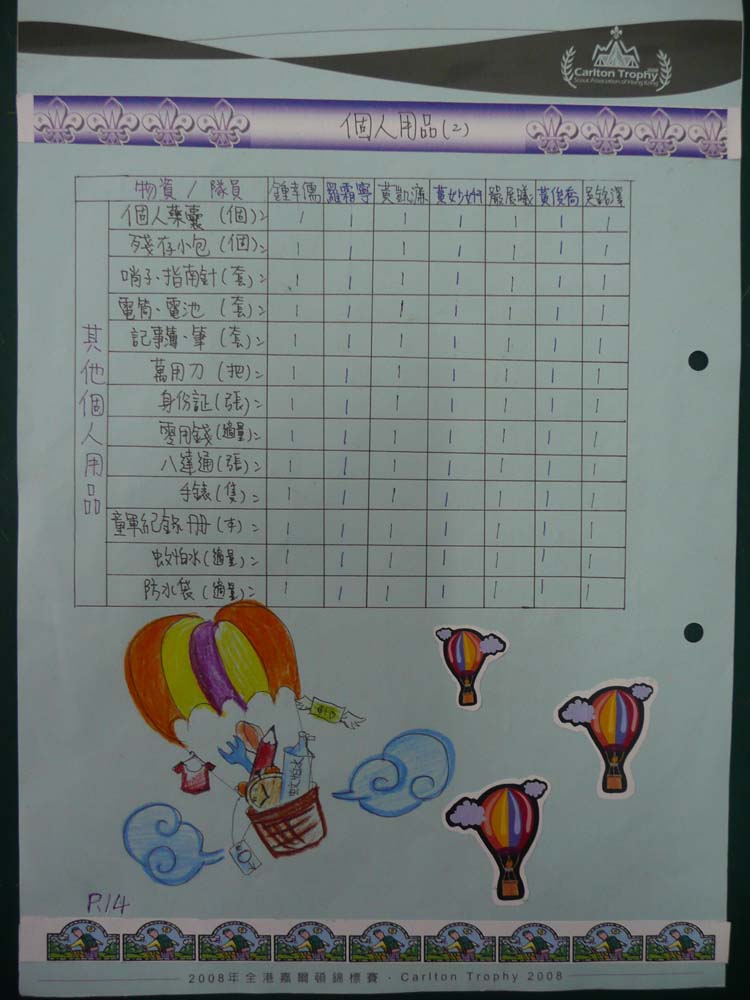 Carlton Trophy 2008
Scout Association of Hong Kong
個人用品(2)
物資 / 隊員 鍾幸儒 羅霜寧 嚴展曦 黃俊喬
其他個人用品
個人藥囊(個): 1 1 1 1 1 1 1
殘存小包(個): 1 1 1 1 1 1 1
哨子、指南針(套): 1 1 1 1 1 1 1
電筒、電池(套): 1 1 1 1 1 1 1
記事簿、筆(套): 1 1 1 1 1 1 1
萬用刀(把): 1 1 1 1 1 1 1
身份証(張): 1 1 1 1 1 1 1
零用錢(適量): 1 1 1 1 1 1 1
八達通(張): 1 1 1 1 1 1 1
手錶(隻): 1 1 1 1 1 1 1
童軍紀錄冊(本): 1 1 1 1 1 1 1
蚊怕水(適量): 1 1 1 1 1 1 1
防水袋(適量): 1 1 1 1 1 1 1
蚊怕水
P.14
2008年全港嘉爾頓錦標賽 · Carlton Trophy 2008